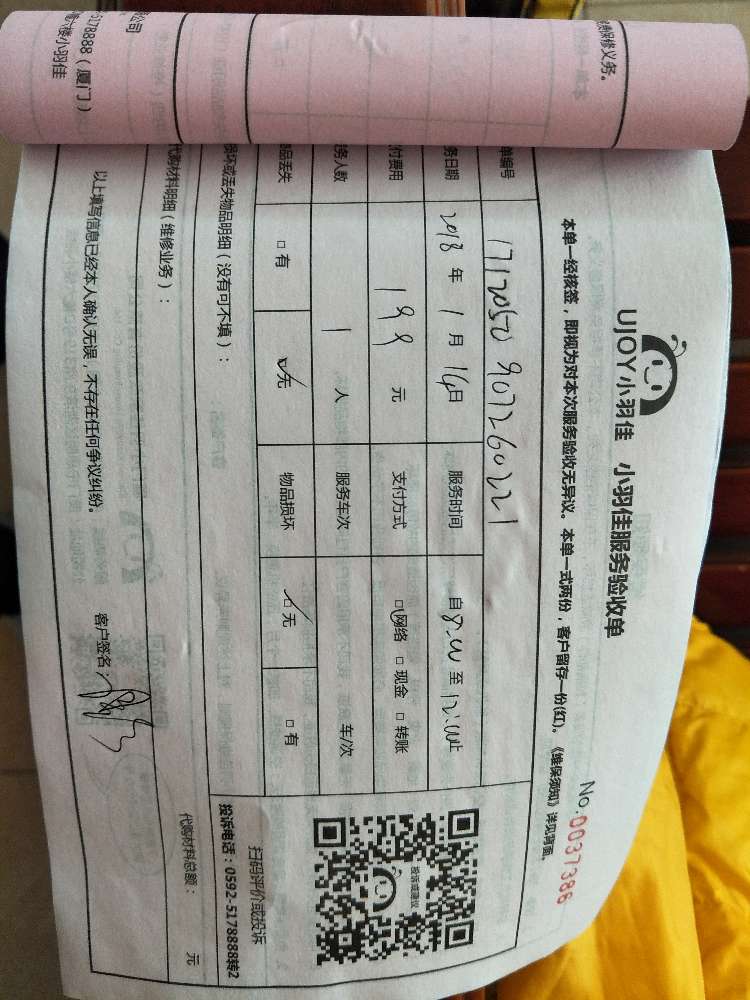 UJOY小羽佳 小羽佳服务验收单
No:0037388
本单一经核签，即视为对本次服务验收无异议。本单一式两份，客户留存一份(红)。《维保须知》详见背面。
单编号 1712050907260221
务日期 2018 年 1 月 14 日 服务时间 自 8:00 至 12:00 止
付费用 199 元 支付方式 □网络 □现金 □转账
务人数 1 人 服务车次 车/次
品丢失 □有 ☑无 物品损坏 ☑无 □有
损坏或丢失物品明细（没有可不填）：
扫码评价或投诉
投诉电话：0592-5178888转2
投诉或建议
代购材料明细（维修业务）：
代购材料总额： 元
以上填写信息已经本人确认无误，不存在任何争议纠纷。
客户签名：
保修义务。
5178888（厦门）
楼小羽佳
公司